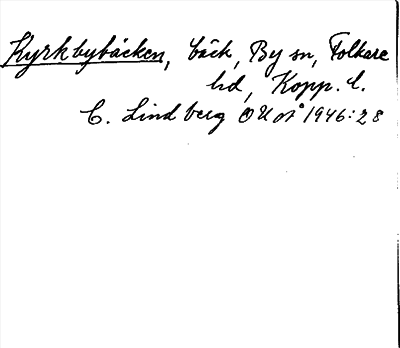 Kyrkbybäcken, bäck, By sn, Folkare
hd, Kopp. l.
C. Lindberg OUoÅ 1946:28